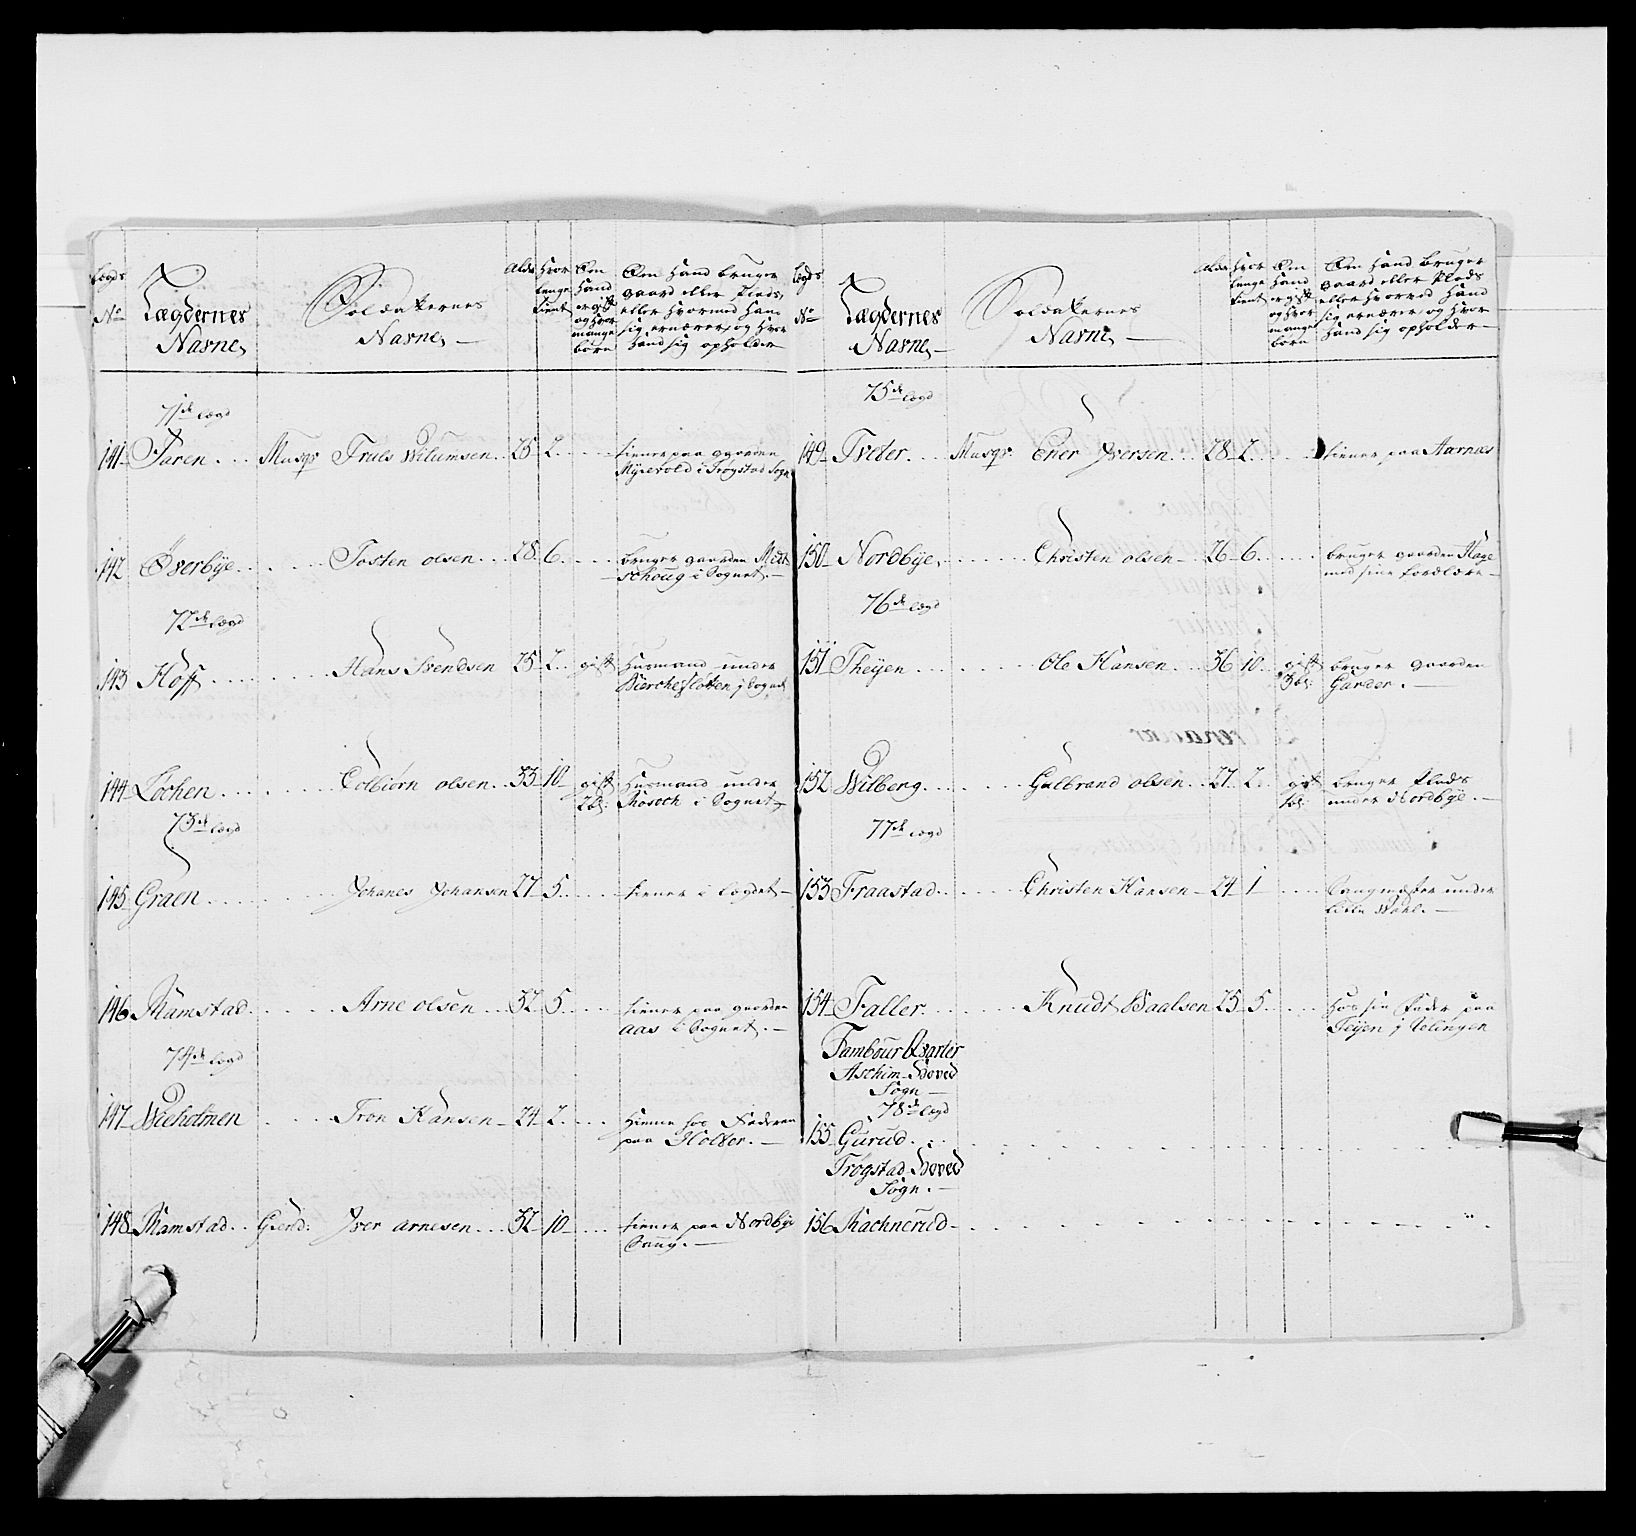 Lægds
No
Lægdernes
Navne,
Soldaternes
Navne, —
Alder
Hvor
lenge
tient
Om
hand
er gift
og hvor
mange
børn
Om hand bruger
gaard eller Plads,
eller hvormed hand
sig ernærer, og hvor
hand sig opholder
71de Lægd
141 Taren . . . Musqr Truels Wilumsen . 25 2 . . . . tiener paa gaarden
Mysevold i Trøgstad Sogn
142 Øverbÿe . . . . . Tosten olsen . . . 28 6 . . . . bruger gaarden
schoug i Sognet. —
72de Lægd
143 Hoff . . . . . . Hans Svendsen 25 2 . . gift Huusmand under
i Sognet
144 Løchen . . . . . . Colbiørn olsen . . 33 10 gift Huusmand under
2 b: i Sognet
73de Lægd
145 Graen . . . . . . . Johanes Johansen 27 5 . . . . tiener i Lægdet —
146 Ramstad . . . . . Arne olsen . . . 32 5 . . . . tiener paa gaarden
aas i Sognet. —
74de Lægd
147 Wieholmen . . . . Tron Hansen — 24 2 . . . . hiemme hos Faderen
paa Holter. —
148 Ramstad . . Giend: Iver arnesen . . . 32 10 . . . tiener paa Nordbÿe
Saug. —
Lægds
No
Lægdernes
Navne, —
Soldaternes
Navne, —
Alder
Hvor
lenge
tient
Om
hand
er gift
og hvor
mange
børn
Om hand bruger
gaard eller Plads
eller hvorved hand
sig ernærer, og hvor
hand sig opholder —
75de Lægd
149 Tveter . . . Musqr Ener Iversen . . . 28 2 . . . . tiener paa Aarnæs
150 Nordbÿe, . . . . . Christen olsen — 26 6 . . . . bruger gaarden Hage
med sine forældre —
76de Lægd
151 Theÿen . . . . . . Ole Hansen . . . 36 10 . . gift bruger gaarden
3 b: Garder. —
152 Wilberg . . . . . . Gulbrand olsen . . 27 2 . . gift bruger Plads
1 b: under Nordbÿe. —
77de Lægd
153 Fraastad . . . . . Christen Hansen — 24 1 . . . . Saugmæster under
lille
154 Faller . . . . . . Knudt Paalsen 25 5 . . . . hos sin Fader paa
Teÿen
Tambour Qvarter
Aschim Hoved
Sogn —
78de Lægd
155 Gurud . . . . . . . . . . . . . . . .
Trøgstad Hoved
Sogn. —
156 Rachnerud — . . . . . . . . . . . . . . .